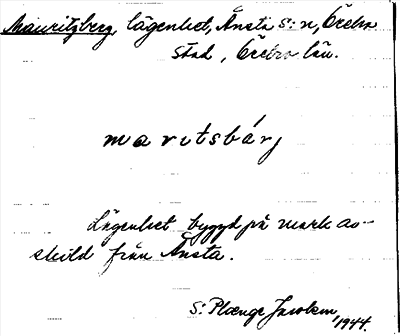 Mauritzberg, lägenhet, Ånsta s:n, Örebro
stad, Örebro län.
maritsbárj
Lägenhet byggd på mark av-
skild från Ånsta.
S: Plænge Jacobson, 1944.